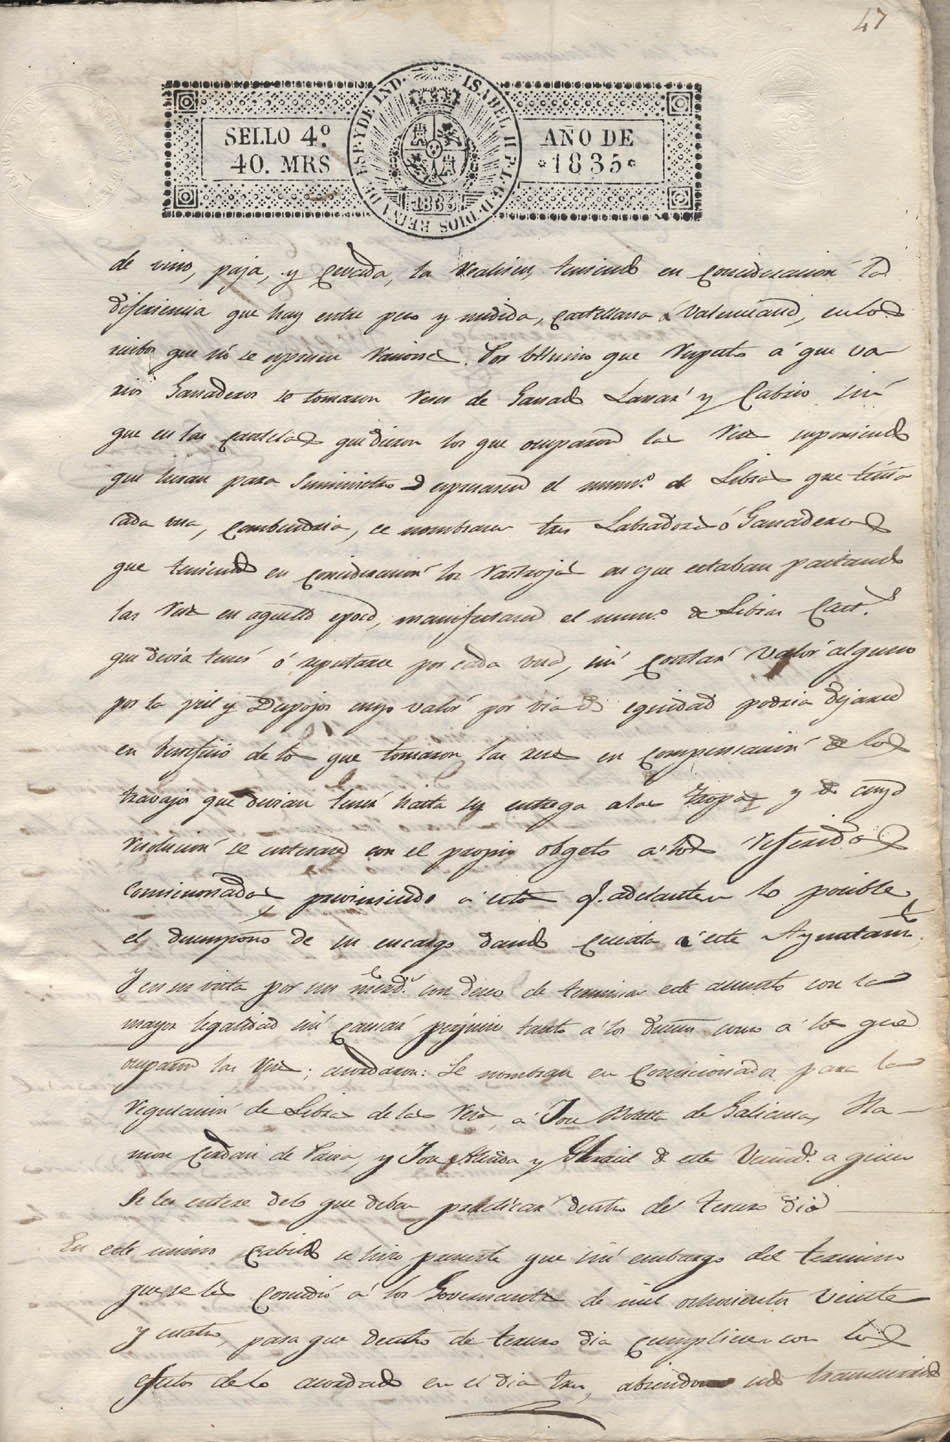 47
SELLO 4º
40. MRS
ISABEL II P. L. G. D. DIOS REINA DE ESP. Y DE IND.
1835
AÑO DE
1835
de vino, paja, y Cevada, la realisen, teniendo en Concideracion la
diferiencia que hay entre peso y medida, Castellana o Valenciana, en los
recibos que nó se esprese raciones. Por ultimo que respeto á que va-
rios Ganaderos se tomaron reses de Ganado Lanar y Cabrio sin
que en las que dieron los que ocuparon las reses suponiendo
que heran para Suministros espresaron el numº de Libras que tenia
cada una, Combendria, se nombrasen tres Labradores ó Ganaderos
que teniendo en Concideracion los rastrojos en que estaban pastando
las reses en aquella epoca, manifestaran el numº de Libras Cast.s
que devia tener ó reputarse por cada una, sin Contar Valor alguno
por la piel y Despojos cuyo valor por via de equidad podria dejarse
en beneficio de los que tomaron las reses en Compensacion de los
travajos que devian tener hasta su entrega a las tropas y de cuya
resolucion se enteran con el propio obgeto á los referidos
Comicionados, previniendo á estos q.e adelanten lo posible
el desempeño de su encargo dando Cuenta á este Ayuntam.to
Y en su vista por sus merd.s con deseo de terminar este asunto con la
mayor legalidad sin Causar perjuicio tanto á los dueños como á los que
ocuparon las reses; acordaron: Se nombran en Comicionados para la
regulacion de Libras de las reses, á Jose de Galiana, Ra-
mon Cerdan de Paira, y Jose y de este Vecind.º a quien
Se les entere de lo que deban practicar dentro del tercero dia
En este mismo Cabildo se hizo presente que sin embargo del termino
que se les Conedió á los Governantes de mil ochocientos veinte
y cuatro, para que dentro de tercero dia Cumpliesen con los
efectos de lo acordado en el dia tres, abiendo sido transcurrido